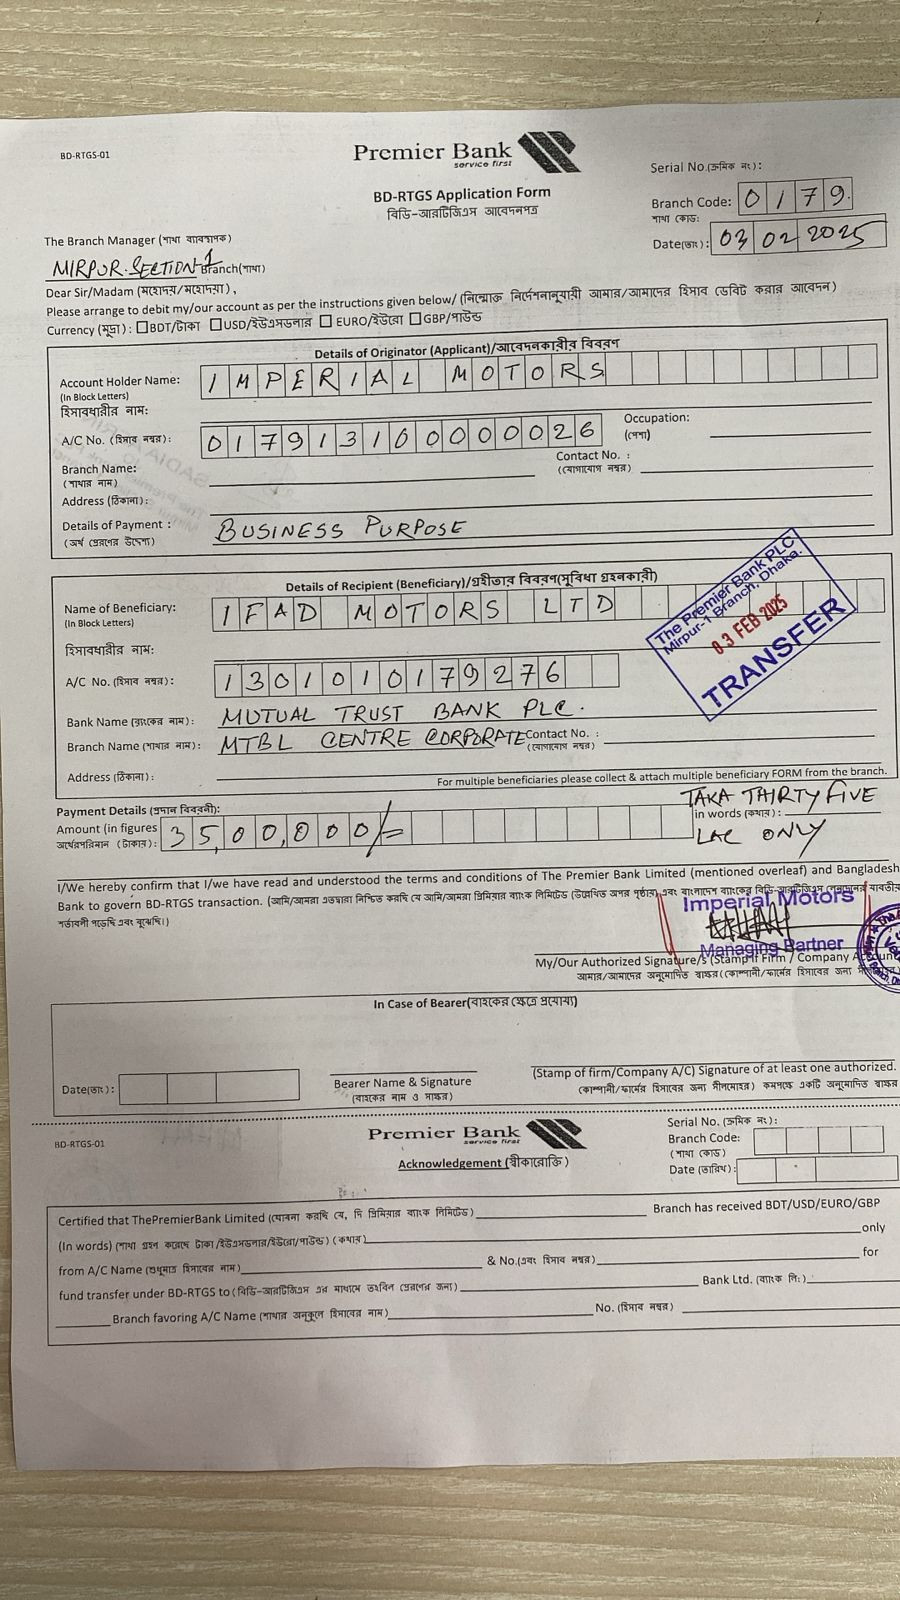 BD-RTGS-01
Premier Bank
service first
BD-RTGS Application Form
বিডি-আরটিজিএস আবেদনপত্র
Serial No.(ক্রমিক নং):
Branch Code: 0179
শাখা কোড:
Date(তাং): 03 02 2025
The Branch Manager (শাখা ব্যবস্থাপক)
MIRPUR.SECTION-1 Branch(শাখা)
Dear Sir/Madam (মহোদয়/মহোদয়া),
Please arrange to debit my/our account as per the instructions given below/ (নিম্নোক্ত নির্দেশনানুযায়ী আমার/আমাদের হিসাব ডেবিট করার আবেদন)
Currency (মুদ্রা): BDT/টাকা USD/ইউএসডলার EURO/ইউরো GBP/পাউন্ড
Details of Originator (Applicant)/আবেদনকারীর বিবরণ
Account Holder Name: IMPERIAL MOTORS
(In Block Letters)
হিসাবধারীর নাম:
A/C No. (হিসাব নম্বর): 017913100000026
Occupation:
(পেশা)
Branch Name:
(শাখার নাম)
Contact No. :
(যোগাযোগ নম্বর)
Address (ঠিকানা):
Details of Payment : BUSINESS PURPOSE
(অর্থ প্রেরণের উদ্দেশ্য)
Details of Recipient (Beneficiary)/গ্রহীতার বিবরণ(সুবিধা গ্রহনকারী)
Name of Beneficiary: IFAD MOTORS LTD
(In Block Letters)
The Premier Bank PLC
Mirpur-1 Branch, Dhaka.
03 FEB 2025
TRANSFER
হিসাবধারীর নাম:
A/C No. (হিসাব নম্বর): 1301010179276
Bank Name (ব্যাংকের নাম): MUTUAL TRUST BANK PLC.
Branch Name (শাখার নাম): MTBL CENTRE CORPORATE Contact No. :
(যোগাযোগ নম্বর)
Address (ঠিকানা):
For multiple beneficiaries please collect & attach multiple beneficiary FORM from the branch.
Payment Details (প্রদান বিবরনী):
Amount (in figures 35,00,000/=
in words (কথায়): TAKA THIRTY FIVE
LAC ONLY
I/We hereby confirm that I/we have read and understood the terms and conditions of The Premier Bank Limited (mentioned overleaf) and Bangladesh
Bank to govern BD-RTGS transaction.
Imperial Motors
Managing Partner
My/Our Authorized Signature/s (Stamp if Firm / Company Account
In Case of Bearer(বাহকের ক্ষেত্রে প্রযোজ্য)
Date(তাং):
Bearer Name & Signature
(বাহকের নাম ও স্বাক্ষর)
(Stamp of firm/Company A/C) Signature of at least one authorized.
(কোম্পানী/ফার্মের হিসাবের জন্য সীলমোহর) কমপক্ষে একটি অনুমোদিত স্বাক্ষর
BD-RTGS-01
Premier Bank
service first
Acknowledgement (স্বীকারোক্তি)
Serial No. (ক্রমিক নং):
Branch Code:
(শাখা কোড)
Date (তারিখ):
Certified that ThePremierBank Limited (ঘোষনা করছি যে, দি প্রিমিয়ার ব্যাংক লিমিটেড) Branch has received BDT/USD/EURO/GBP
(In words) (শাখা গ্রহণ করেছে টাকা/ইউএসডলার/ইউরো/পাউন্ড) (কথায়) only
from A/C Name (শুধুমাত্র হিসাবের নাম) & No.(এবং হিসাব নম্বর) for
fund transfer under BD-RTGS to Bank Ltd. (ব্যাংক লি:)
Branch favoring A/C Name (শাখার অনুকুলে হিসাবের নাম) No. (হিসাব নম্বর)